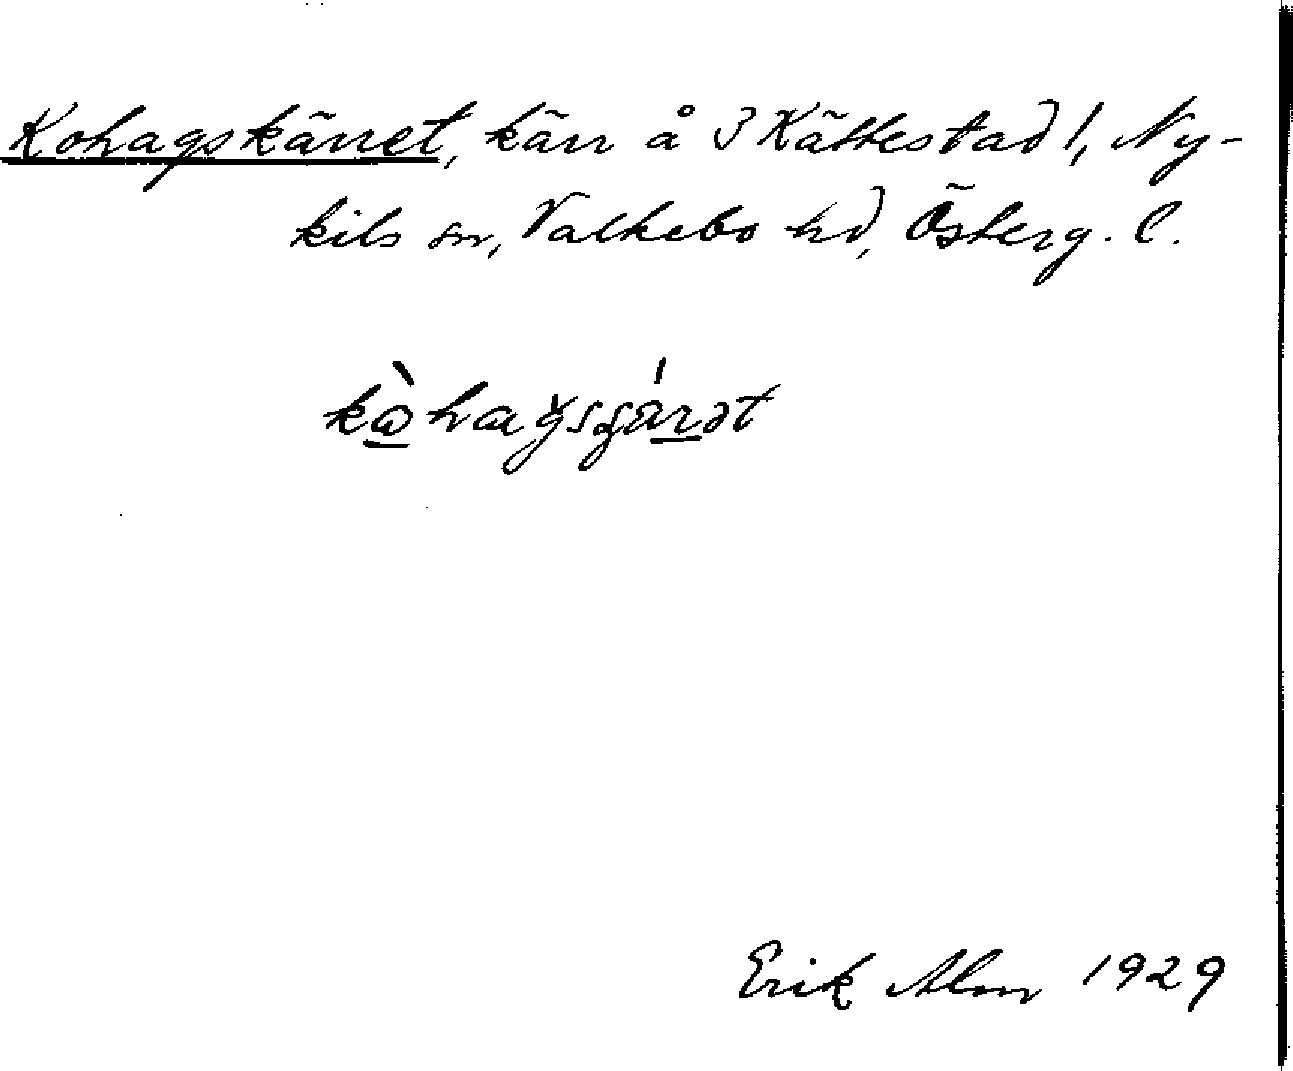 Kohagskärret, kärr å 3 Kättestad !, Ny-
kils sn, Valkebo hd, Österg. l.
Erik Alm 1929